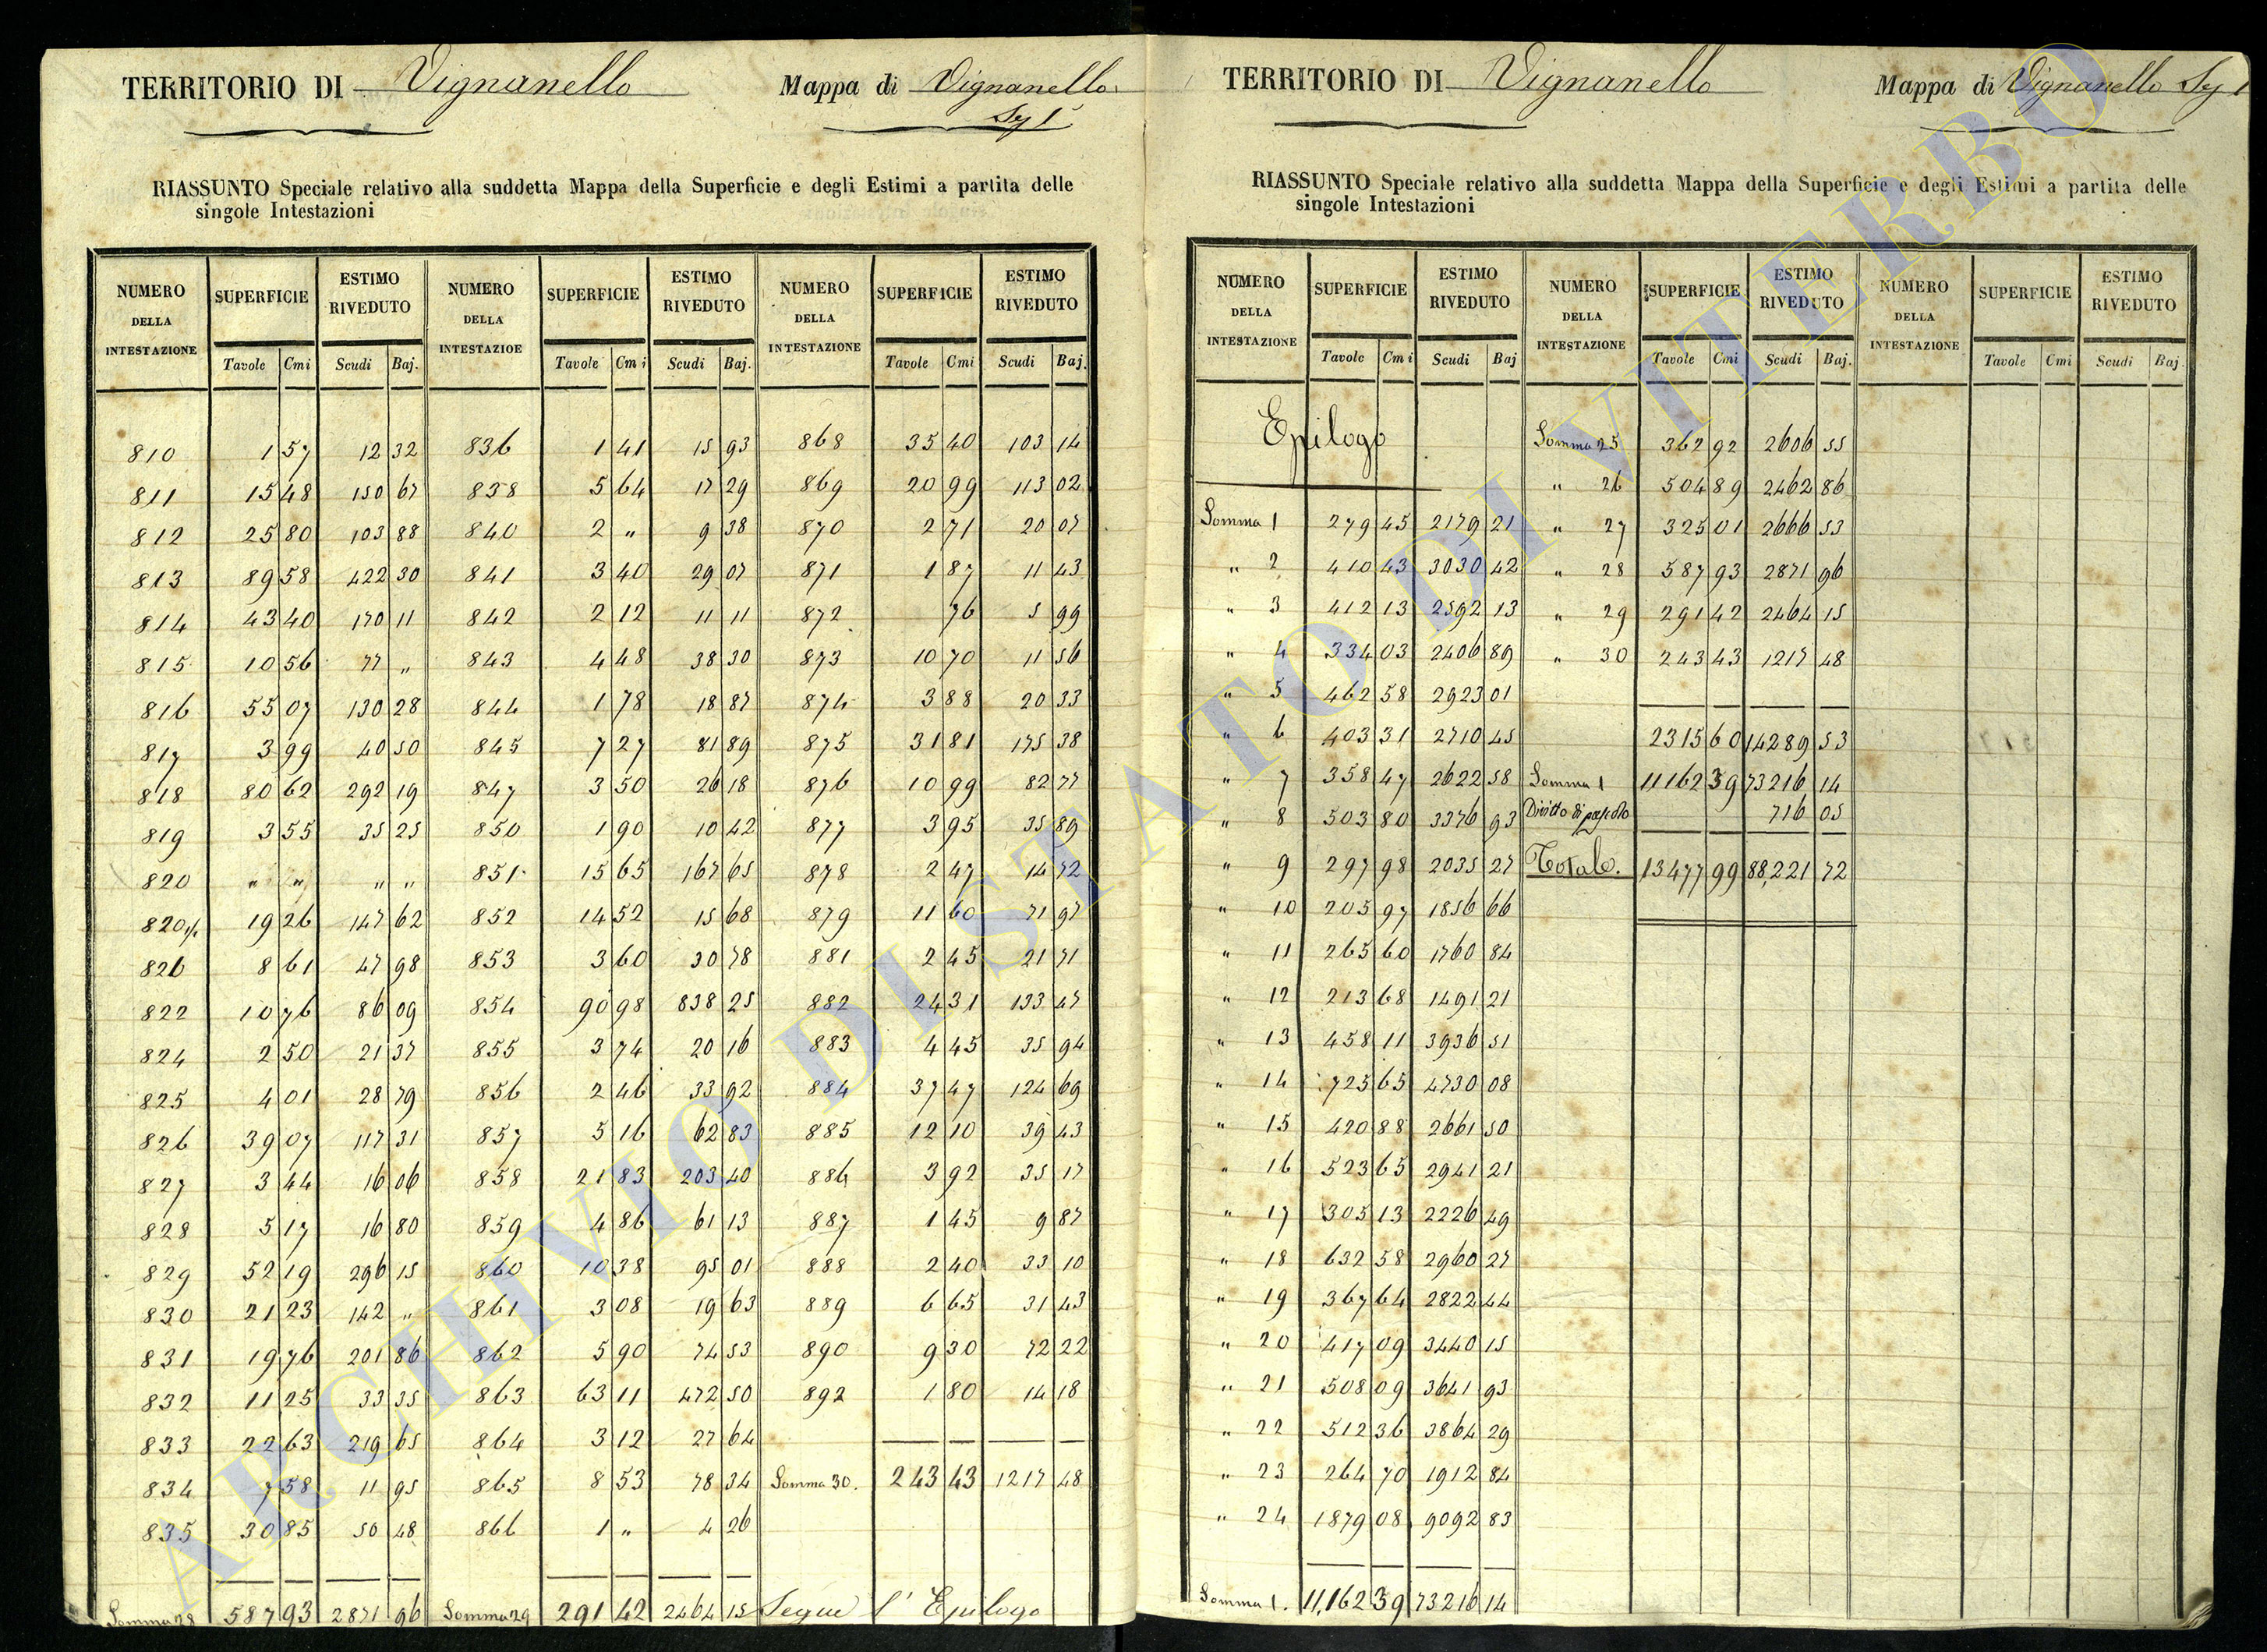 TERRITORIO DI Vignanello Mappa di Vignanello
Sez 1
RIASSUNTO Speciale relativo alla suddetta Mappa della Superficie e degli Estimi a partita delle
singole Intestazioni
NUMERO DELLA INTESTAZIONE SUPERFICIE ESTIMO RIVEDUTO NUMERO DELLA INTESTAZIOE SUPERFICIE ESTIMO RIVEDUTO NUMERO DELLA INTESTAZIONE SUPERFICIE ESTIMO RIVEDUTO
Tavole Cmi Scudi Baj. Tavole Cmi Scudi Baj. Tavole Cmi Scudi Baj.
810 1 57 12 32 836 1 41 15 93 868 35 40 103 14
811 15 48 150 67 838 5 64 17 29 869 20 99 113 02
812 25 80 103 88 840 2 " 9 38 870 2 71 20 07
813 89 58 422 30 841 3 40 29 07 871 1 87 11 43
814 43 40 170 11 842 2 12 11 11 872 76 5 99
815 10 56 77 " 843 4 48 38 30 873 10 70 11 56
816 55 07 130 28 844 1 78 18 87 874 3 88 20 33
817 3 99 40 50 845 7 27 81 89 875 31 81 175 38
818 80 62 292 19 847 3 50 26 18 876 10 99 82 77
819 3 55 35 25 850 1 90 10 42 877 3 95 35 89
820 " " " " 851 15 65 167 65 878 2 47 14 72
820 1/2 19 26 147 62 852 14 52 15 68 879 11 60 71 97
820 8 61 47 98 853 3 60 30 78 881 2 45 21 71
822 10 76 86 09 854 90 98 838 25 882 24 31 133 47
824 2 50 21 37 855 3 74 20 16 883 4 45 35 94
825 4 01 28 79 856 2 46 33 92 884 37 47 124 69
826 39 07 117 31 857 5 16 62 83 885 12 10 39 43
827 3 44 16 06 858 21 83 203 40 886 3 92 35 17
828 5 17 16 80 859 4 86 61 13 887 1 45 9 87
829 52 19 296 15 860 10 38 95 01 888 2 40 33 10
830 21 23 142 " 861 3 08 19 63 889 6 65 31 43
831 19 76 201 86 862 5 90 74 53 890 9 30 72 22
832 11 25 33 35 863 63 11 472 50 892 1 80 14 18
833 22 63 219 65 864 3 12 27 64
834 7 58 11 95 865 8 53 78 34 Somma 30. 243 43 1217 48
835 30 85 50 48 866 1 " 4 26
Somma 28 587 93 2871 96 Somma 29 291 42 2464 15 Segue l'Epilogo
TERRITORIO DI Vignanello Mappa di Vignanello Sez 1
RIASSUNTO Speciale relativo alla suddetta Mappa della Superficie e degli Estimi a partita delle
singole Intestazioni
NUMERO DELLA INTESTAZIONE SUPERFICIE ESTIMO RIVEDUTO NUMERO DELLA INTESTAZIONE SUPERFICIE ESTIMO RIVEDUTO NUMERO DELLA INTESTAZIONE SUPERFICIE ESTIMO RIVEDUTO
Tavole Cmi Scudi Baj Tavole Cmi Scudi Baj. Tavole Cmi Scudi Baj.
Epilogo Somma 25 362 92 2606 55
" 26 504 89 2462 86
Somma 1 279 45 2179 21 " 27 325 01 2666 53
" 2 410 43 3030 42 " 28 587 93 2871 96
" 3 412 13 2592 13 " 29 291 42 2464 15
" 4 334 03 2406 89 " 30 243 43 1217 48
" 5 462 58 2923 01
" 6 403 31 2710 45 2315 60 14289 53
" 7 358 47 2622 58 Somma 1 11162 39 73216 14
" 8 503 80 3376 93 Diritto di pascolo 716 05
" 9 297 98 2035 27 Totale. 13477 99 88,221 72
" 10 205 97 1856 66
" 11 265 60 1760 84
" 12 213 68 1491 21
" 13 458 11 3936 51
" 14 725 65 4730 08
" 15 420 88 2661 50
" 16 523 65 2941 21
" 17 305 13 2226 49
" 18 632 58 2960 27
" 19 367 64 2822 44
" 20 417 09 3440 15
" 21 508 09 3641 93
" 22 512 36 3864 29
" 23 264 70 1912 84
" 24 1879 08 9092 83
Somma 1. 11,162 39 73216 14
ARCHIVIO DI STATO DI VITERBO